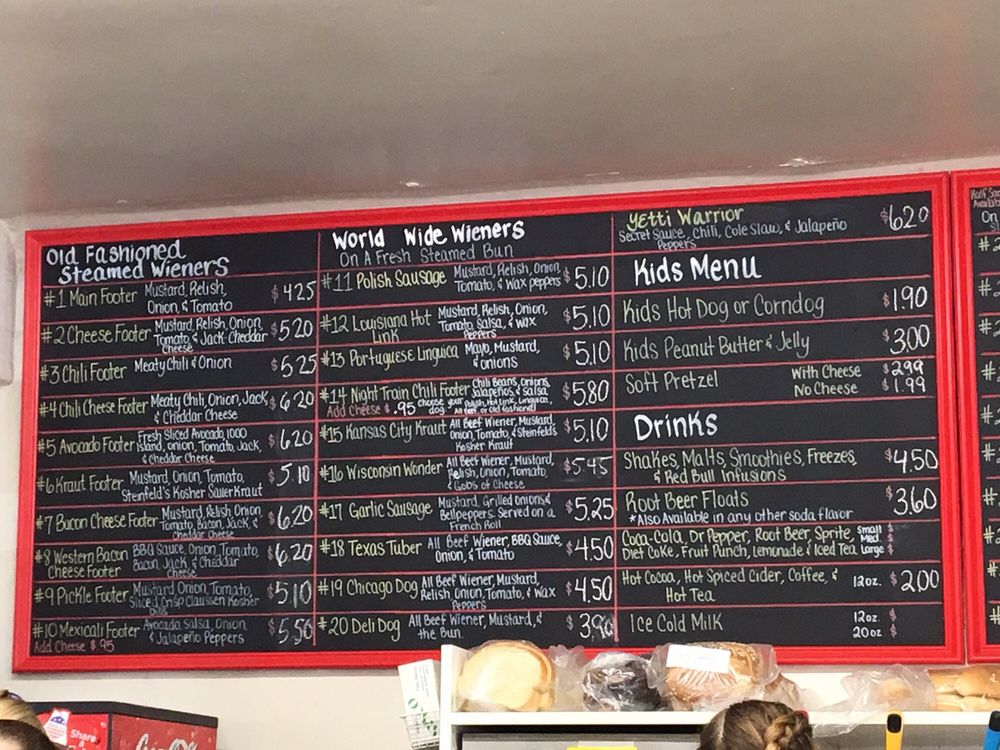 Old Fashioned
Steamed Wieners
#1 Main Footer Mustard, Relish,
Onion, & Tomato
$4.25
#2 Cheese Footer Mustard, Relish, Onion,
Tomato & Jack Cheddar
Cheese
$5.20
#3 Chili Footer Meaty Chili & Onion
$5.25
#4 Chili Cheese Footer Meaty Chili, Onion, Jack,
& Cheddar Cheese
$6.20
#5 Avocado Footer Fresh Sliced Avocado, 1000
island, onion, Tomato, Jack,
& Cheddar Cheese
$6.20
#6 Kraut Footer Mustard, Onion, Tomato,
Steinfeld's Kosher SauerKraut
$5.10
#7 Bacon Cheese Footer Mustard, Relish, Onion
Tomato, Bacon, Jack, &
Cheddar Cheese
$6.20
#8 Western Bacon
Cheese Footer
BBQ Sauce, Onion, Tomato,
Bacon, Jack, & Cheddar
Cheese
$6.20
#9 Pickle Footer Mustard, Onion, Tomato,
Sliced Crisp Claussen Kosher
Dills
$5.10
#10 Mexicali Footer Avocado Salsa, Onion,
& Jalapeño Peppers
Add Cheese $.95
$5.50
World Wide Wieners
On A Fresh Steamed Bun
#11 Polish Sausage Mustard, Relish, Onion,
Tomato, & Wax peppers
$5.10
#12 Louisiana Hot
Link
Mustard, Relish, Onion,
Tomato, Salsa, & Wax
Peppers
$5.10
#13 Portuguese Linguica Mayo, Mustard,
& onions
$5.10
#14 Night Train Chili Footer Chili Beans, Onions,
Jalapeños, & Salsa
Add Cheese $.95 choose your
dog. Polish, Hot Link, Linguica,
All Beef, or Old fashioned!
$5.80
#15 Kansas City Kraut All Beef Wiener, Mustard,
Onion, Tomato, & Steinfeld's
Kosher Kraut
$5.10
#16 Wisconsin Wonder All Beef Wiener, Mustard,
Relish, Onion, Tomato,
& Gobs of Cheese
$5.45
#17 Garlic Sausage Mustard, Grilled Onions &
Bellpeppers. Served on a
French Roll
$5.25
#18 Texas Tuber All Beef Wiener, BBQ Sauce,
Onion, & Tomato
$4.50
#19 Chicago Dog All Beef Wiener, Mustard,
Relish, Onion, Tomato, & Wax
Peppers
$4.50
#20 Deli Dog All Beef Wiener, Mustard, &
the Bun.
$3.90
Yetti Warrior
Secret Sauce, Chili, Cole Slaw, & Jalapeño
Peppers
$6.20
Kids Menu
Kids Hot Dog or Corndog
$1.90
Kids Peanut Butter & Jelly
$3.00
Soft Pretzel
With Cheese $2.99
No Cheese $1.99
Drinks
Shakes, Malts, Smoothies, Freezes,
& Red Bull Infusions
$4.50
Root Beer Floats
*Also Available in any other soda flavor
$3.60
Coca-Cola, Dr Pepper, Root Beer, Sprite,
Diet Coke, Fruit Punch, Lemonade, & Iced Tea
Small $
Med $
Large $
Hot Cocoa, Hot Spiced Cider, Coffee, &
Hot Tea
12oz. $2.00
Ice Cold Milk
12oz. $
20oz $
Share